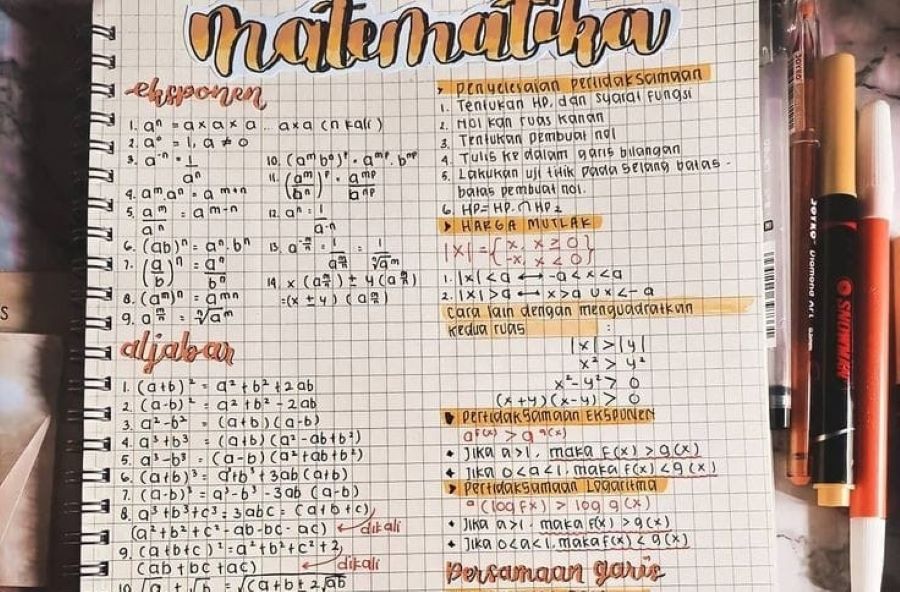 matematika
eksponen
1. aⁿ = a x a x a .. a x a (n kali)
2. a⁰ = 1, a ≠ 0
3. a⁻ⁿ = 1/aⁿ
4. aᵐ. aⁿ = aᵐ⁺ⁿ
5. aᵐ/aⁿ = aᵐ⁻ⁿ
6. (ab)ⁿ = aⁿ. bⁿ
7. (a/b)ⁿ = aⁿ/bⁿ
8. (aᵐ)ⁿ = aᵐⁿ
9. a^(m/n) = ⁿ√aᵐ
10. (aᵐ bⁿ)ᵖ = aᵐᵖ. bⁿᵖ
11. (aᵐ/bⁿ)ᵖ = aᵐᵖ/bⁿᵖ
12. aⁿ = 1/a⁻ⁿ
13. a^(-m/n) = 1/a^(m/n) = 1/ⁿ√aᵐ
14. x (a^(m/n)) ± y (a^(m/n))
= (x ± y) (a^(m/n))
aljabar
1. (a+b)² = a² + b² + 2ab
2. (a-b)² = a² + b² - 2ab
3. a² - b² = (a+b) (a-b)
4. a³ + b³ = (a+b) (a² - ab + b²)
5. a³ - b³ = (a-b) (a² + ab + b²)
6. (a+b)³ = a³ + b³ + 3ab (a+b)
7. (a-b)³ = a³ - b³ - 3ab (a-b)
8. a³ + b³ + c³ - 3abc = (a+b+c)
(a² + b² + c² - ab - bc - ac) ← dikali
9. (a+b+c)² = a² + b² + c² + 2
(ab + bc + ac) ← dikali
10. √a + √b = √(a+b + 2√ab
> Penyelesaian pertidaksamaan
1. Tentukan HP, dan syarat fungsi
2. Nol kan ruas kanan
3. Tentukan pembuat nol
4. Tulis ke dalam garis bilangan
5. Lakukan uji titik pada selang batas-
batas pembuat nol.
6. HP = HP₁ ∩ HP₂
> HARGA MUTLAK
|x| = { x, x ≥ 0
-x, x < 0 }
1. |x| < a ⟷ -a < x < a
2. |x| > a ⟷ x > a ∪ x < -a
Cara lain dengan menguadratkan
kedua ruas :
|x| > |y|
x² > y²
x² - y² > 0
(x + y) (x - y) > 0
Pertidaksamaan EKSPONEN
a^f(x) > a^g(x)
• Jika a>1, maka f(x) > g(x)
• Jika 0<a<1, maka f(x) < g(x)
> Pertidaksamaan Logaritma
ᵃ(log fx) > log g(x)
• Jika a>1 - maka f(x) > g(x)
• Jika 0<a<1, maka f(x) < g(x)
Persamaan garis
JOYKO
Diamond Art
SNOWMAN
S